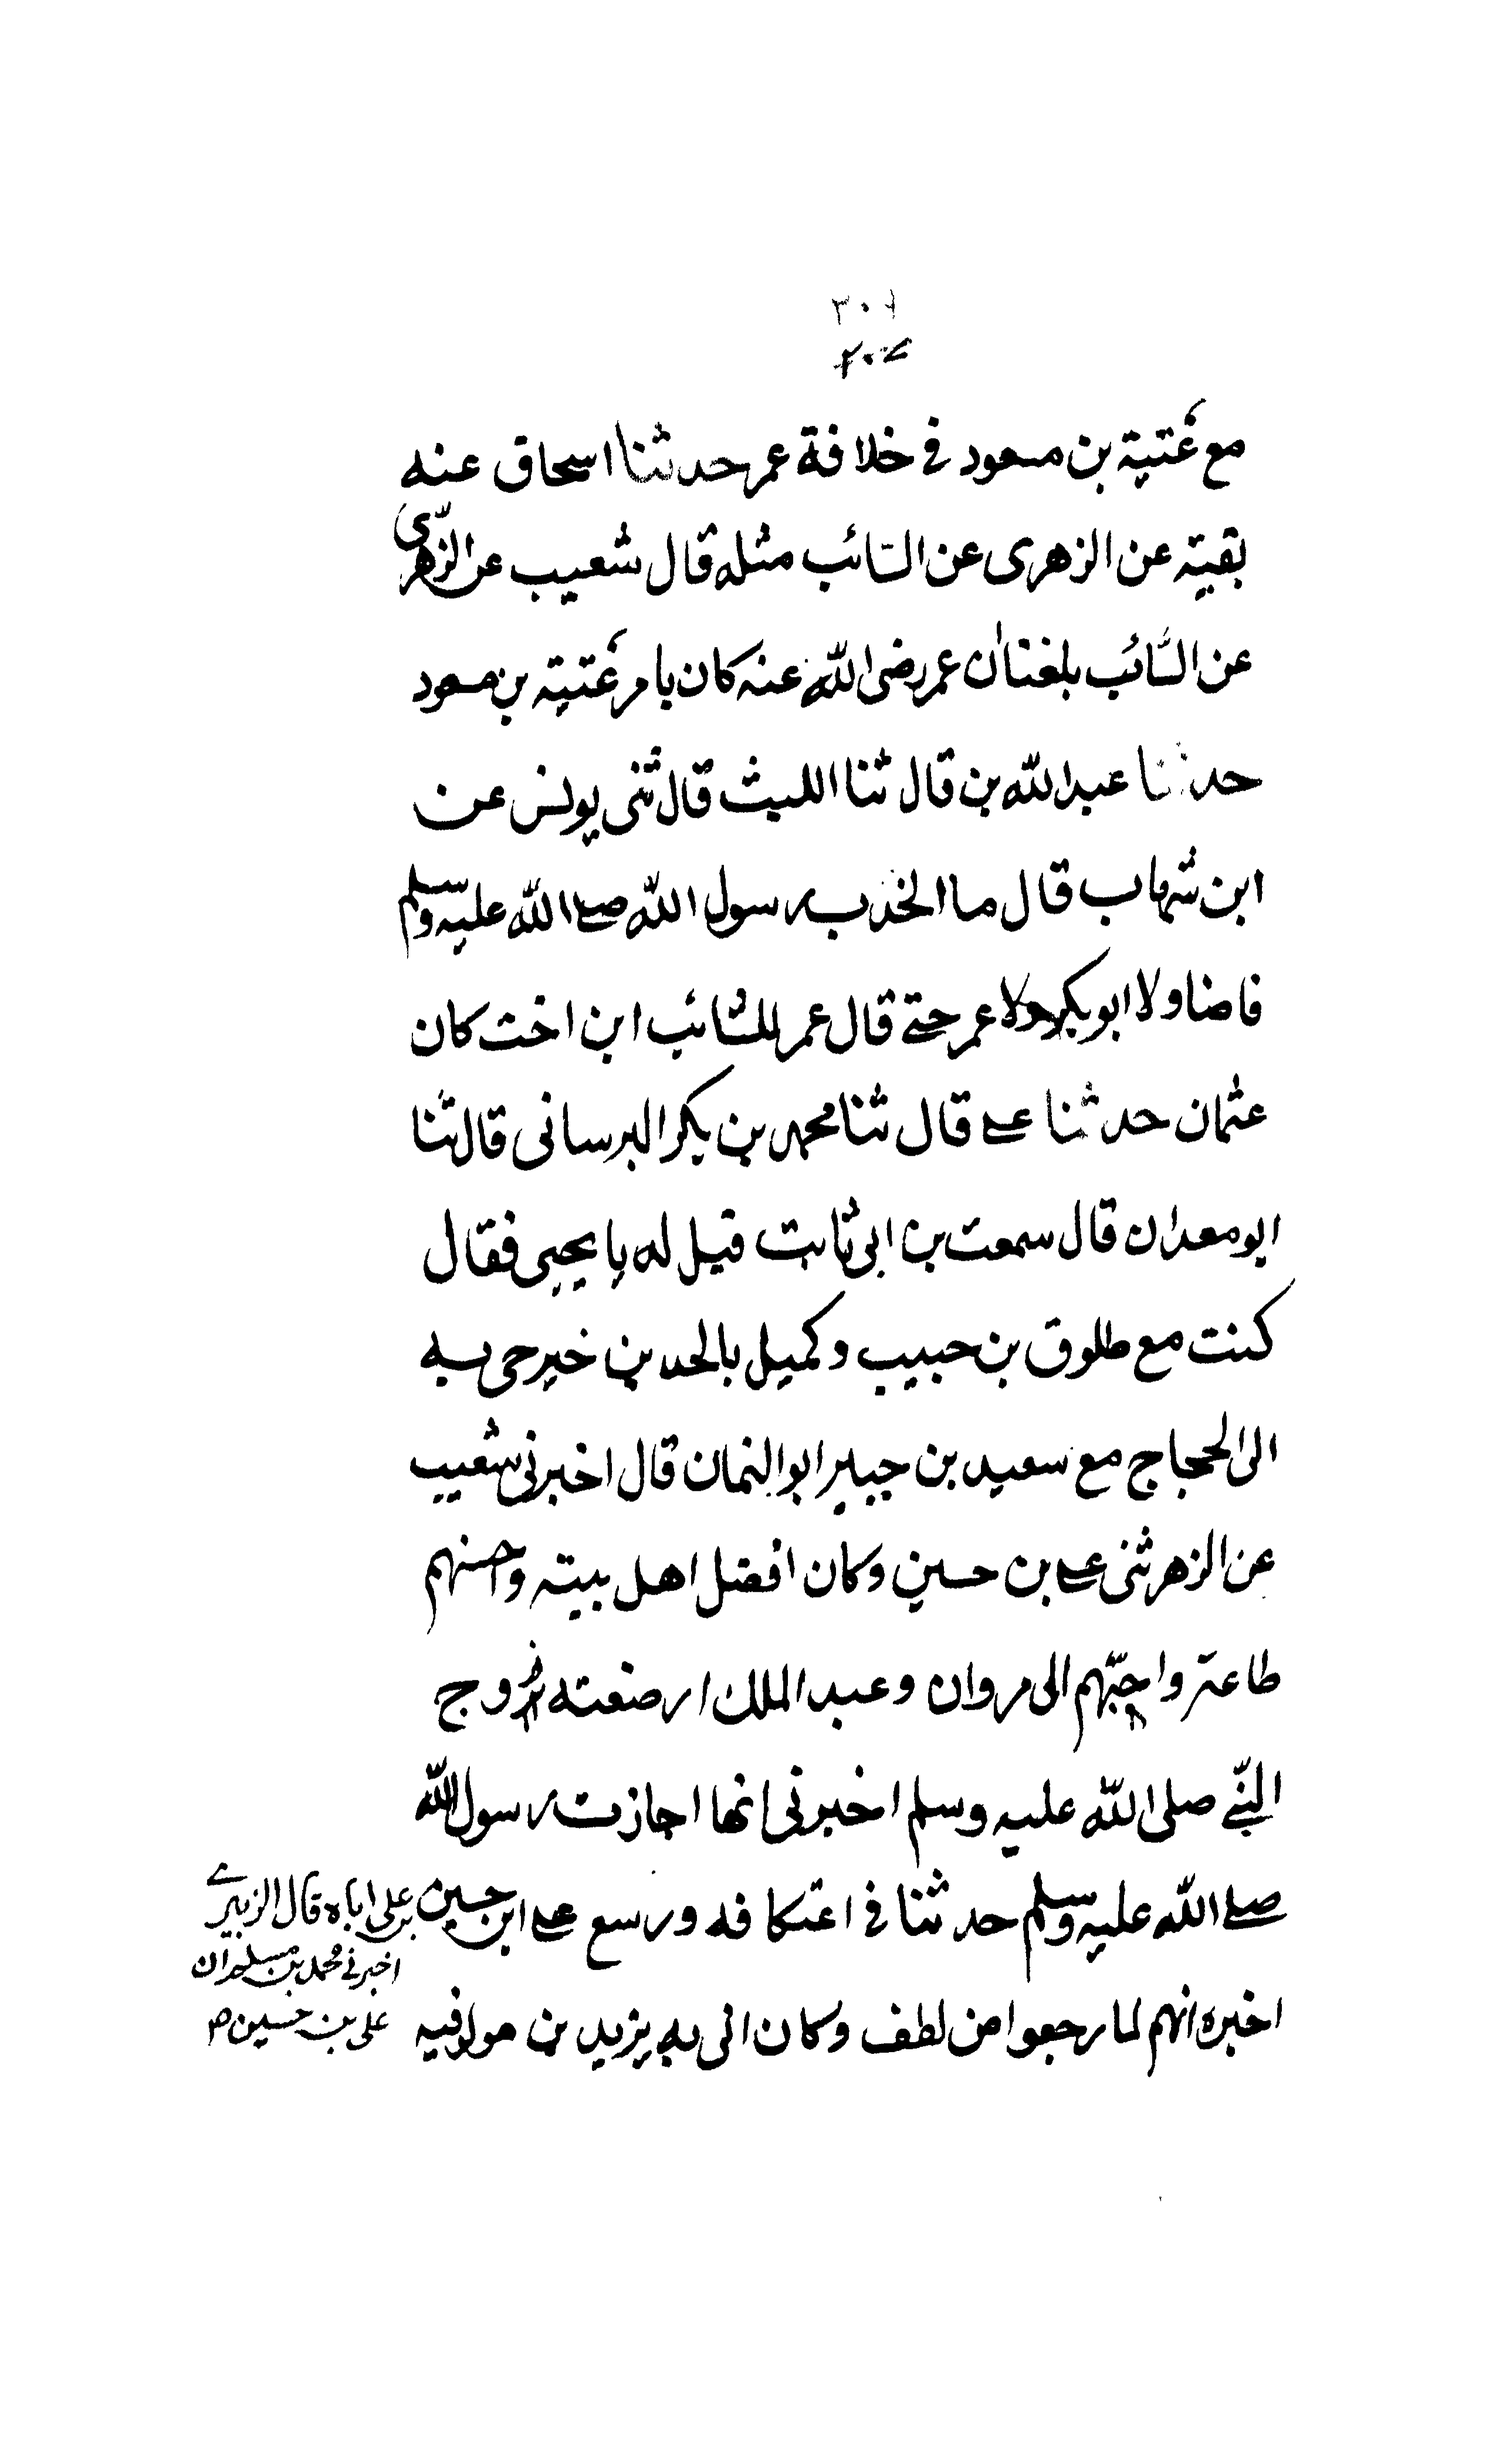 ٢٠٦
مع عتبة بن مسعود فى خلافة عمر حدثنا اسحاق عنه
بقية عن الزهرى عن السّائب مثله قال شعيب عن الزّهرى
عن السّائب بلغنا ان عمر رضى الله عنه كان يامر عتبة بن مسعود
حدثنا عبد الله بن قال ثنا الليث قال ثنى يونس عن
ابن شهاب قال ما اتخذ رسول الله صلى الله عليه وسلم
قاضيا ولا ابو بكر ولا عمر حتى قال عمر للسائب ابن اخت كان
عثمان حدثنا على قال ثنا محمد بن بكر البرسانى قال ثنا
ابو معدان قال سمعت بن ابى ثابت قيل له يا يحيى فقال
كنت مع طلوق بن حبيب وكميل بالحد بن خير حى به
الى الحجاج مع سعيد بن جبير ابو النمان قال اخبرنى شعيب
عن الزهر ثنى على بن حسين وكان افضل اهل بيته واحسنهم
طاعة واحبّهم الى مروان وعبد الملك ارضعته زوج
النّبى صلى الله عليه وسلم اخبرنى انها اجازت رسول الله
صلى الله عليه وسلم حدثنا فى اعتكافه ورسع على ابن حسين
اخبره انهم لما رجعوا من لطف وكان اتى به يزيد بن
بن على اباه قال الزبيرى
اخبرنى محمد بن مسلم ان
على بن حسين